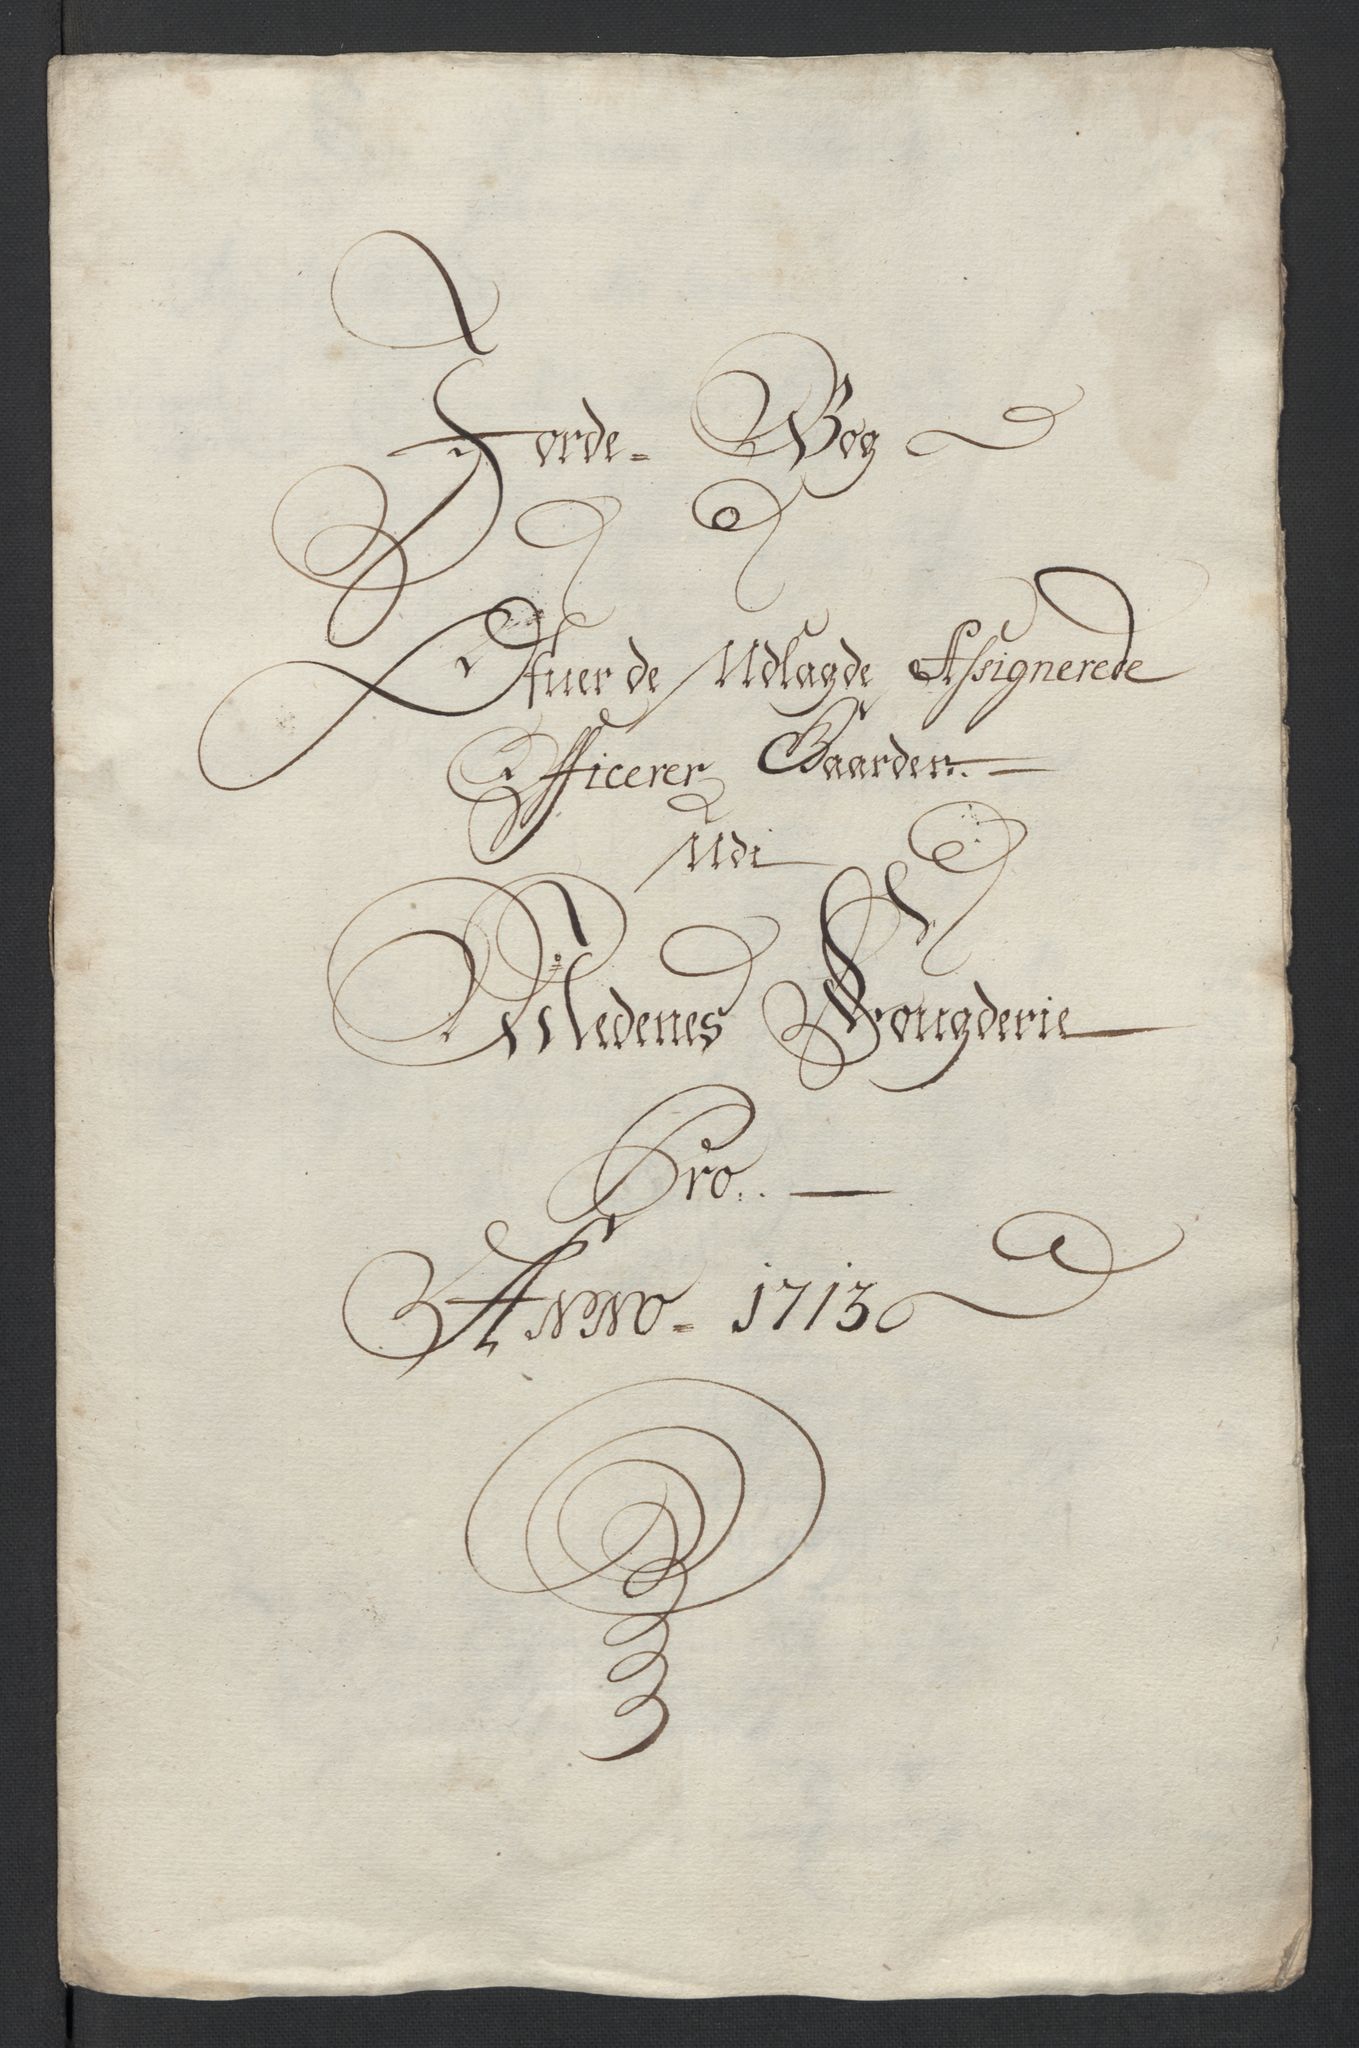 Jorde- Bog
Ofuer de Udlagde Assignerede
Officerer Gaarder.
Udi
Nedenes Fougderie
Pro..
Anno- 1713